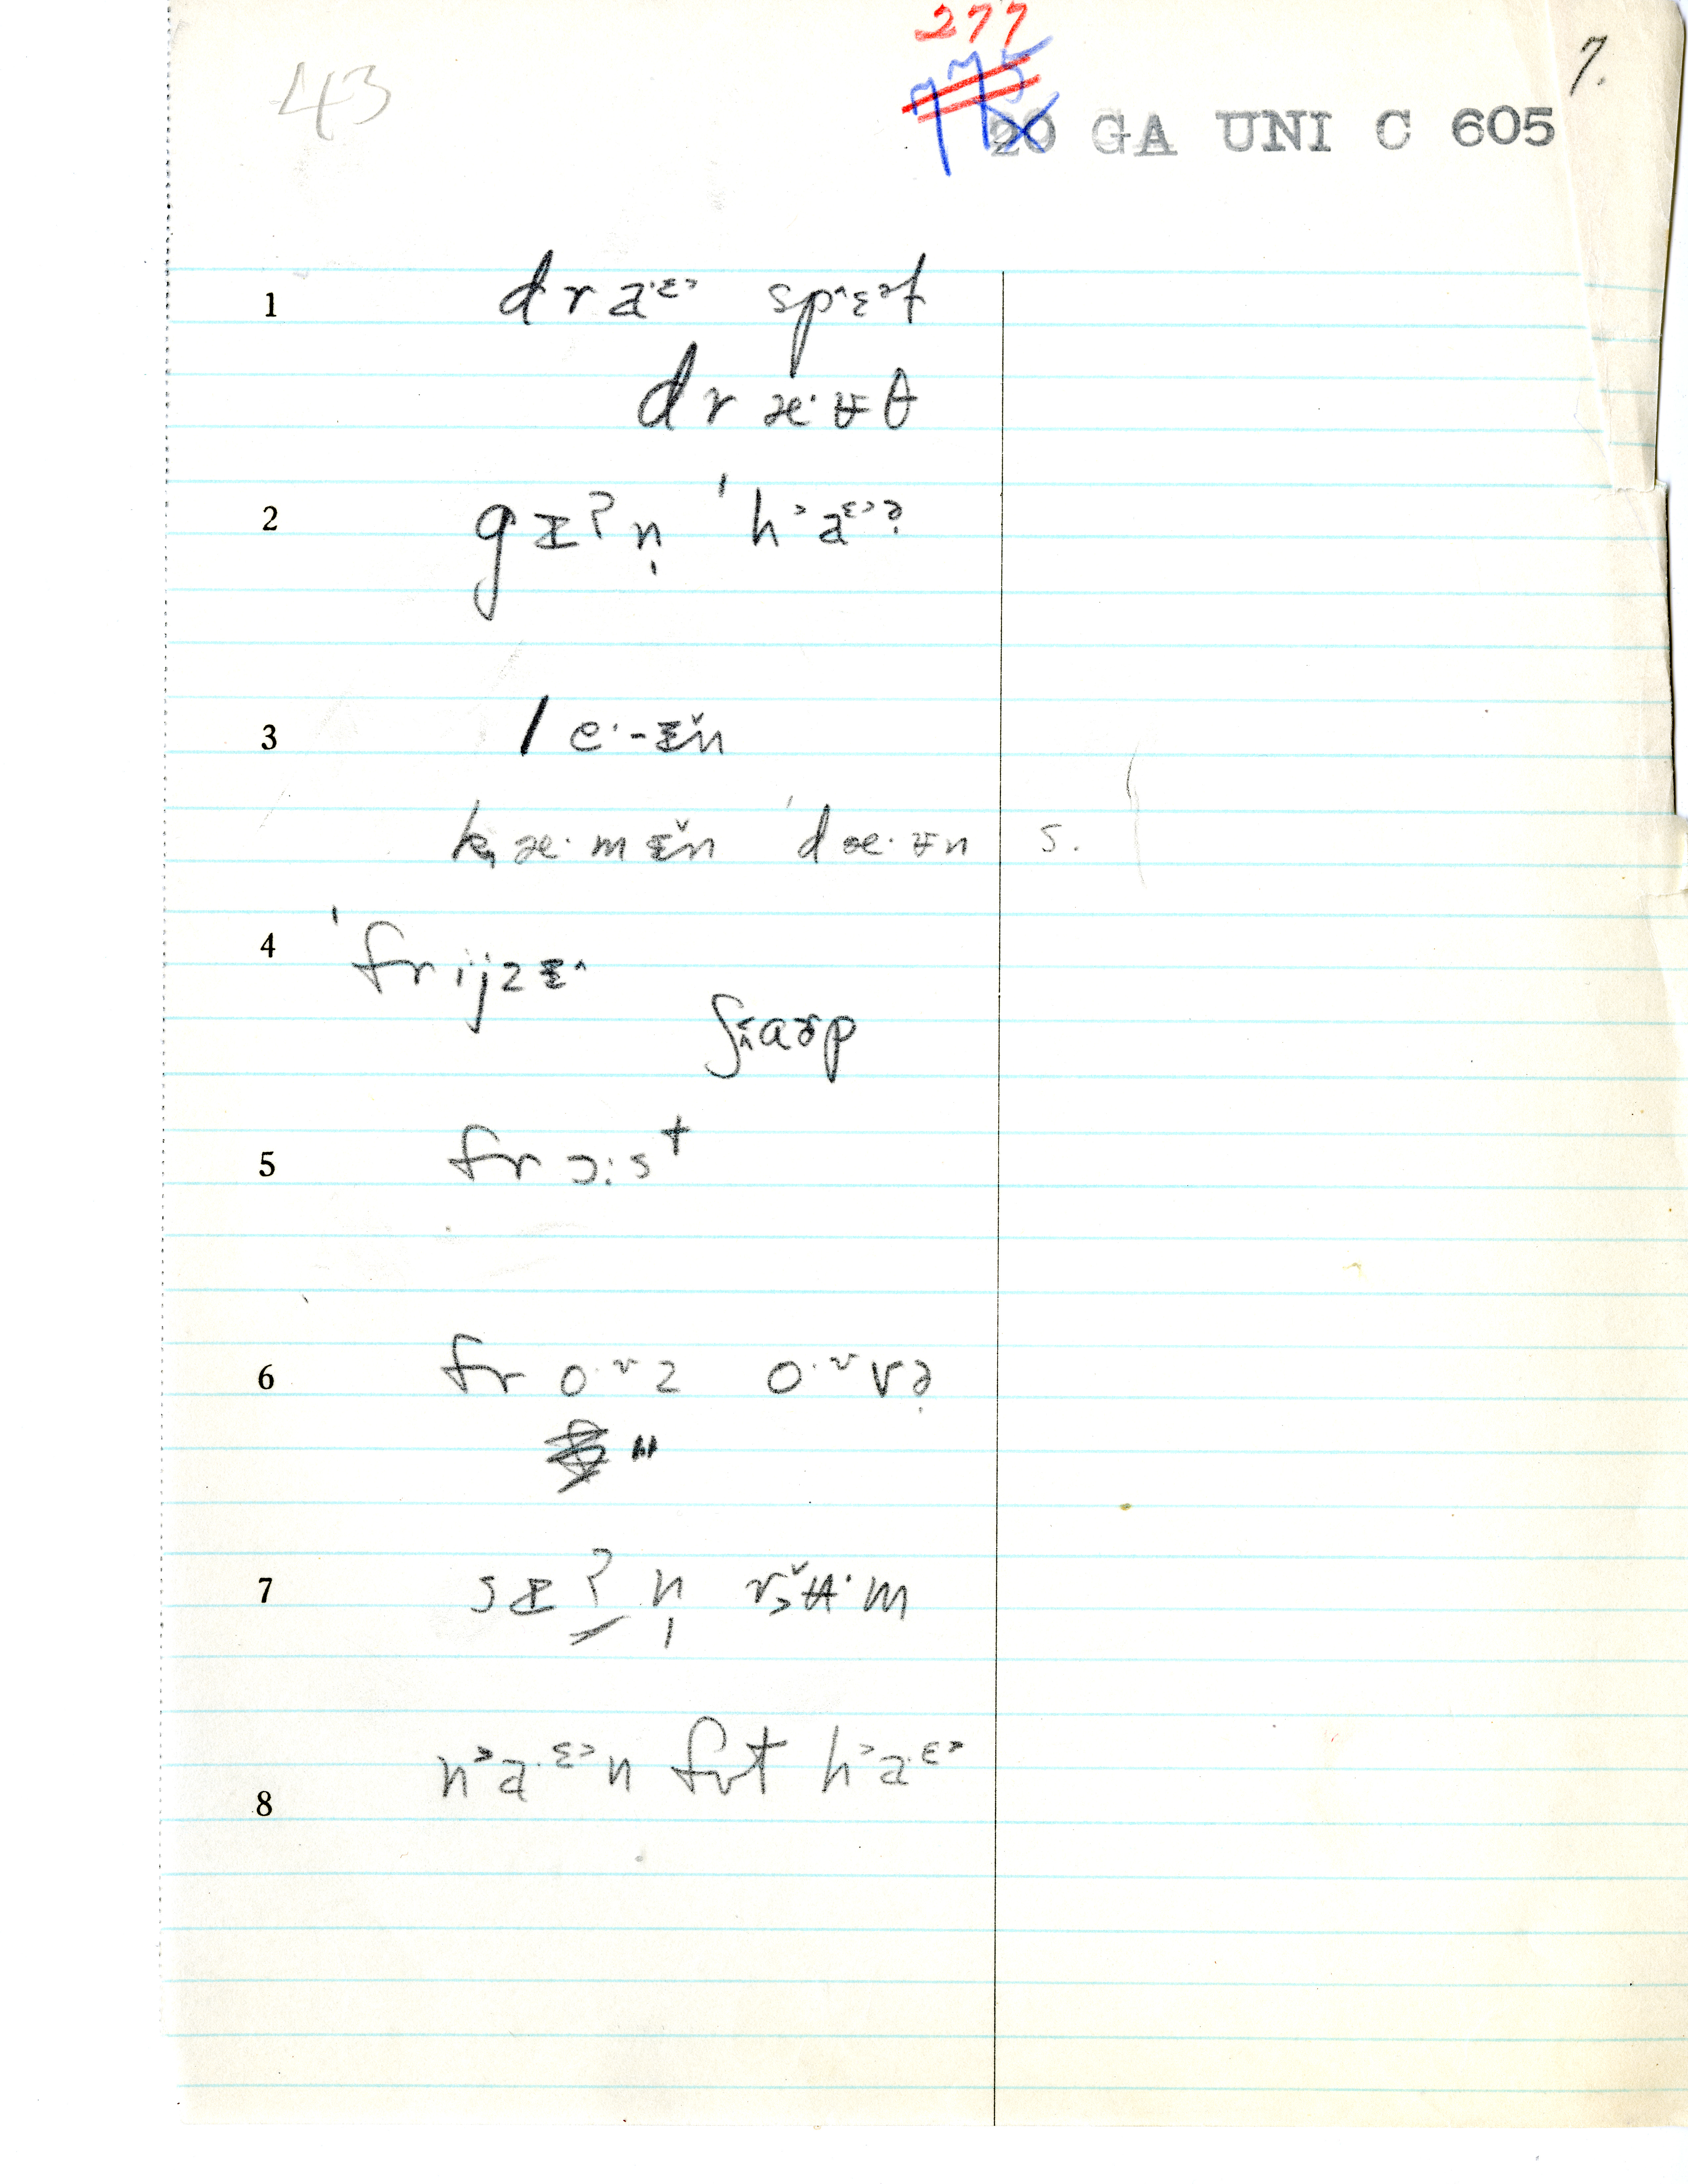 277
43
7.
775
20 GA UNI C 605
1 dra·ᵋ˃ spᶺɛ˃t
dræ·ʉθ
2 gɪʔn̩ ˈh˃a·ᵋ˃ə̣
3 le·-ɪ̌n
kæ·mɪ̌n ˈdæ·ʉn s.
4 ˈfrijzɪ^
ʃɑɚp
5 frɔ:st
6 fro·ᶹz o·ᶹvə̣
"
7 sɪʔn̩ rʉ·m
8 n˃a·ᵋ˃n fʊt h˃a·ᵋ˃